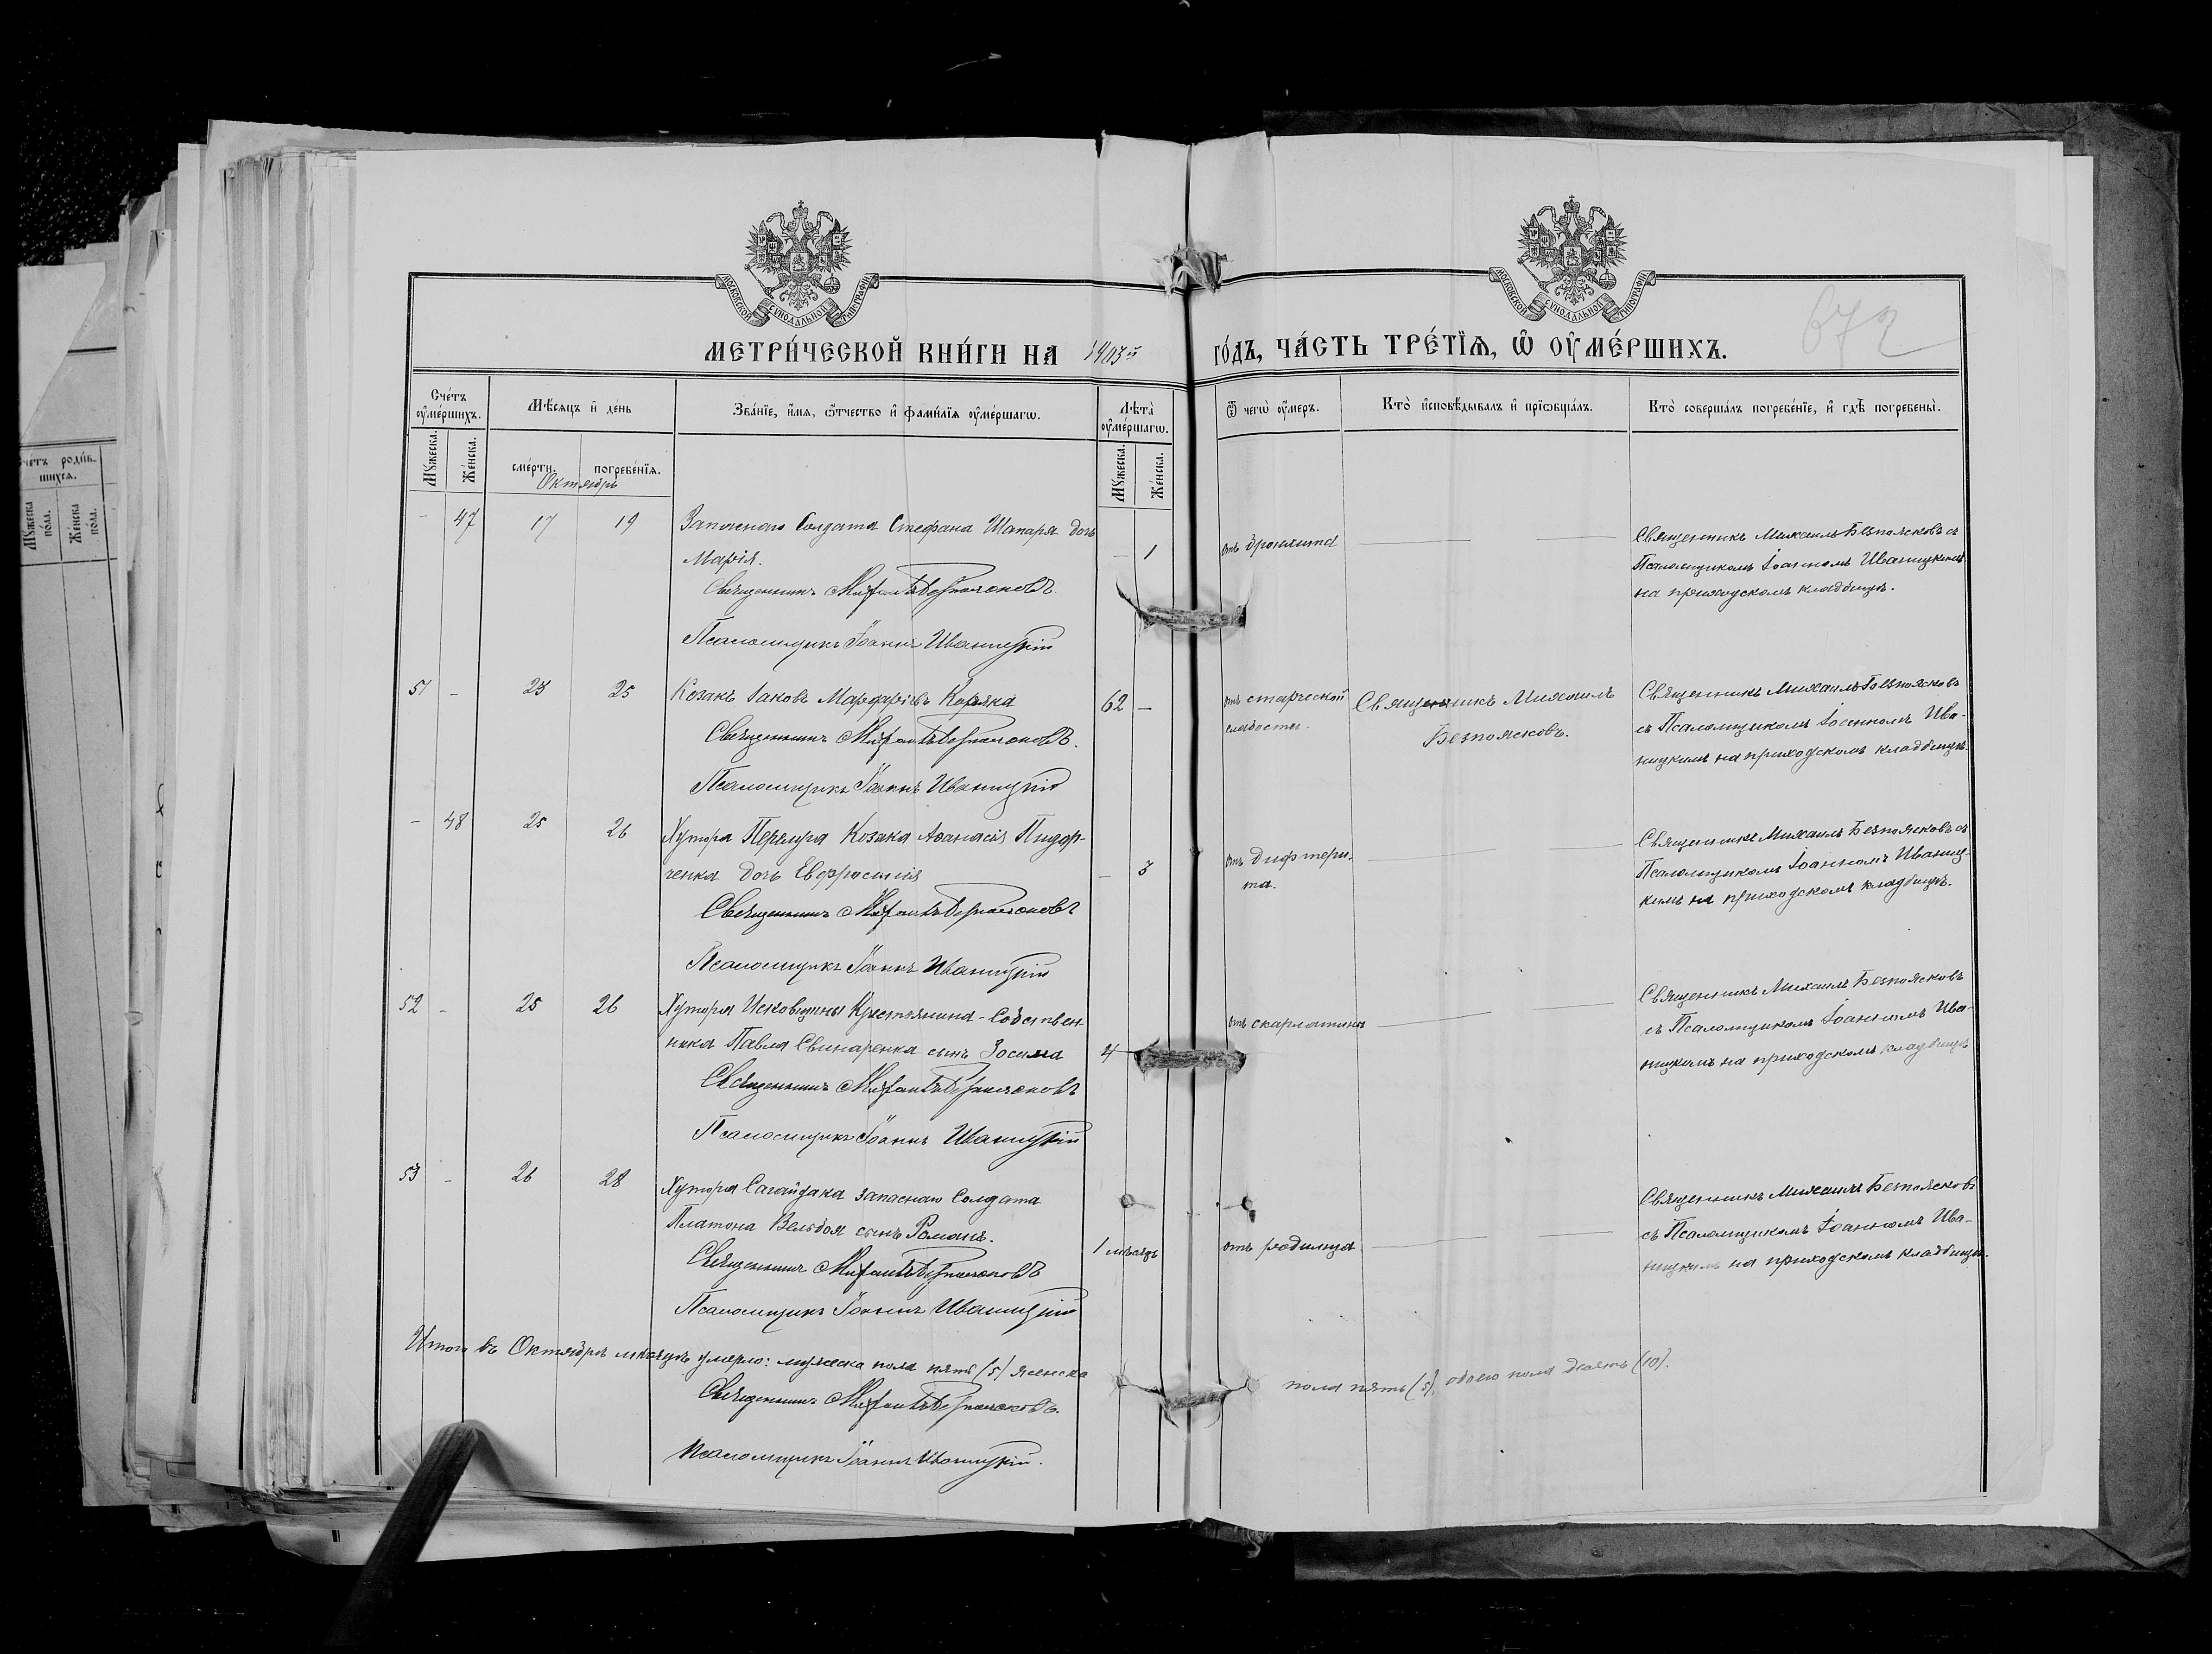 МОСКОВСКОЙ СѴНОДАЛЬНОЙ ТИПОГРАФІИ
МОСКОВСКОЙ СѴНОДАЛЬНОЙ ТИПОГРАФІИ
672
МЕТРИ́ЧЕСКОЙ КНИ́ГИ НА 1903й го́дъ, ЧА́СТЬ ТРЕ́ТЇѦ, Ѡ ОУ҆МЕ́РШИХЪ.
Сче́тъ оу҆ме́ршихъ.
Мꙋ́жеска.
Же́нска.
Мѣ́сяцъ и҆ де́нь
сме́рти.
погребе́нїѧ.
Октябрь
Зва́нїе, и҆́мѧ, ѻ҆́тчество и҆ фами́лїѧ оу҆ме́ршагѡ.
Лѣ́та оу҆ме́ршагѡ.
Мꙋ́жеска.
Же́нска.
Ѿ чегѡ̀ оу҆́меръ.
Кто̀ и҆сповѣ́дывалъ и҆ прїѡбща́лъ.
Кто̀ соверша́лъ погребе́нїе, и҆ гдѣ̀ погребены̀.
- 47 17 19
Запаснаго Солдата Стефана Шапаря дочь
Марія.
Священникъ Михаилъ Безпоясковъ.
Псаломщикъ Іоаннъ Иваницкій
- 1
отъ бронхита
Священникъ Михаилъ Безпоясковъ съ
Псаломщикомъ Іоанномъ Иваницкимъ
на приходскомъ кладбищѣ.
51 - 23 25
Козакъ Іаковъ Мардаріевъ Коряка
Священникъ Михаилъ Безпоясковъ.
Псаломщикъ Іоаннъ Иваницкій
62 -
отъ старческой
слабости.
Священникъ Михаилъ
Безпоясковъ.
Священникъ Михаилъ Безпоясковъ
съ Псаломщикомъ Іоанномъ Ива-
ницкимъ на приходскомъ кладбищѣ.
- 48 25 26
Хутора Козака Аѳанасія
ченка дочь Евфросинія
Священникъ Михаилъ Безпоясковъ
Псаломщикъ Іоаннъ Иваницкій
- 3
отъ дифтери-
та.
Священникъ Михаилъ Безпоясковъ съ
Псаломщикомъ Іоанномъ Иваниц-
кимъ на приходскомъ кладбищѣ.
52 - 25 26
Хутора Исковщины Крестьянина-Собствен-
ника Павла Свинаренка сынъ Зосима
Священникъ Михаилъ Безпоясковъ
Псаломщикъ Іоаннъ Иваницкій
4
отъ скарлатины
Священникъ Михаилъ Безпоясковъ
съ Псаломщикомъ Іоанномъ Ива-
ницкимъ на приходскомъ кладбищѣ
53 - 26 28
Хутора Сагайдака запаснаго Солдата
Платона Вельбоя сынъ Романъ.
Священникъ Михаилъ Безпоясковъ
Псаломщикъ Іоаннъ Иваницкій
1 мѣсяцъ
отъ родимца
Священникъ Михаилъ Безпоясковъ
съ Псаломщикомъ Іоанномъ Ива-
ницкимъ на приходскомъ кладбищѣ.
Итого въ Октябрѣ мѣсяцѣ умерло: мужеска пола пять (5) женска пола пять (5), обоего пола десять (10).
Священникъ Михаилъ Безпоясковъ.
Псаломщикъ Іоаннъ Иваницкій.
Сче́тъ роди́в-
шихсѧ.
Мꙋ́жеска по́ла.
Же́нска по́ла.